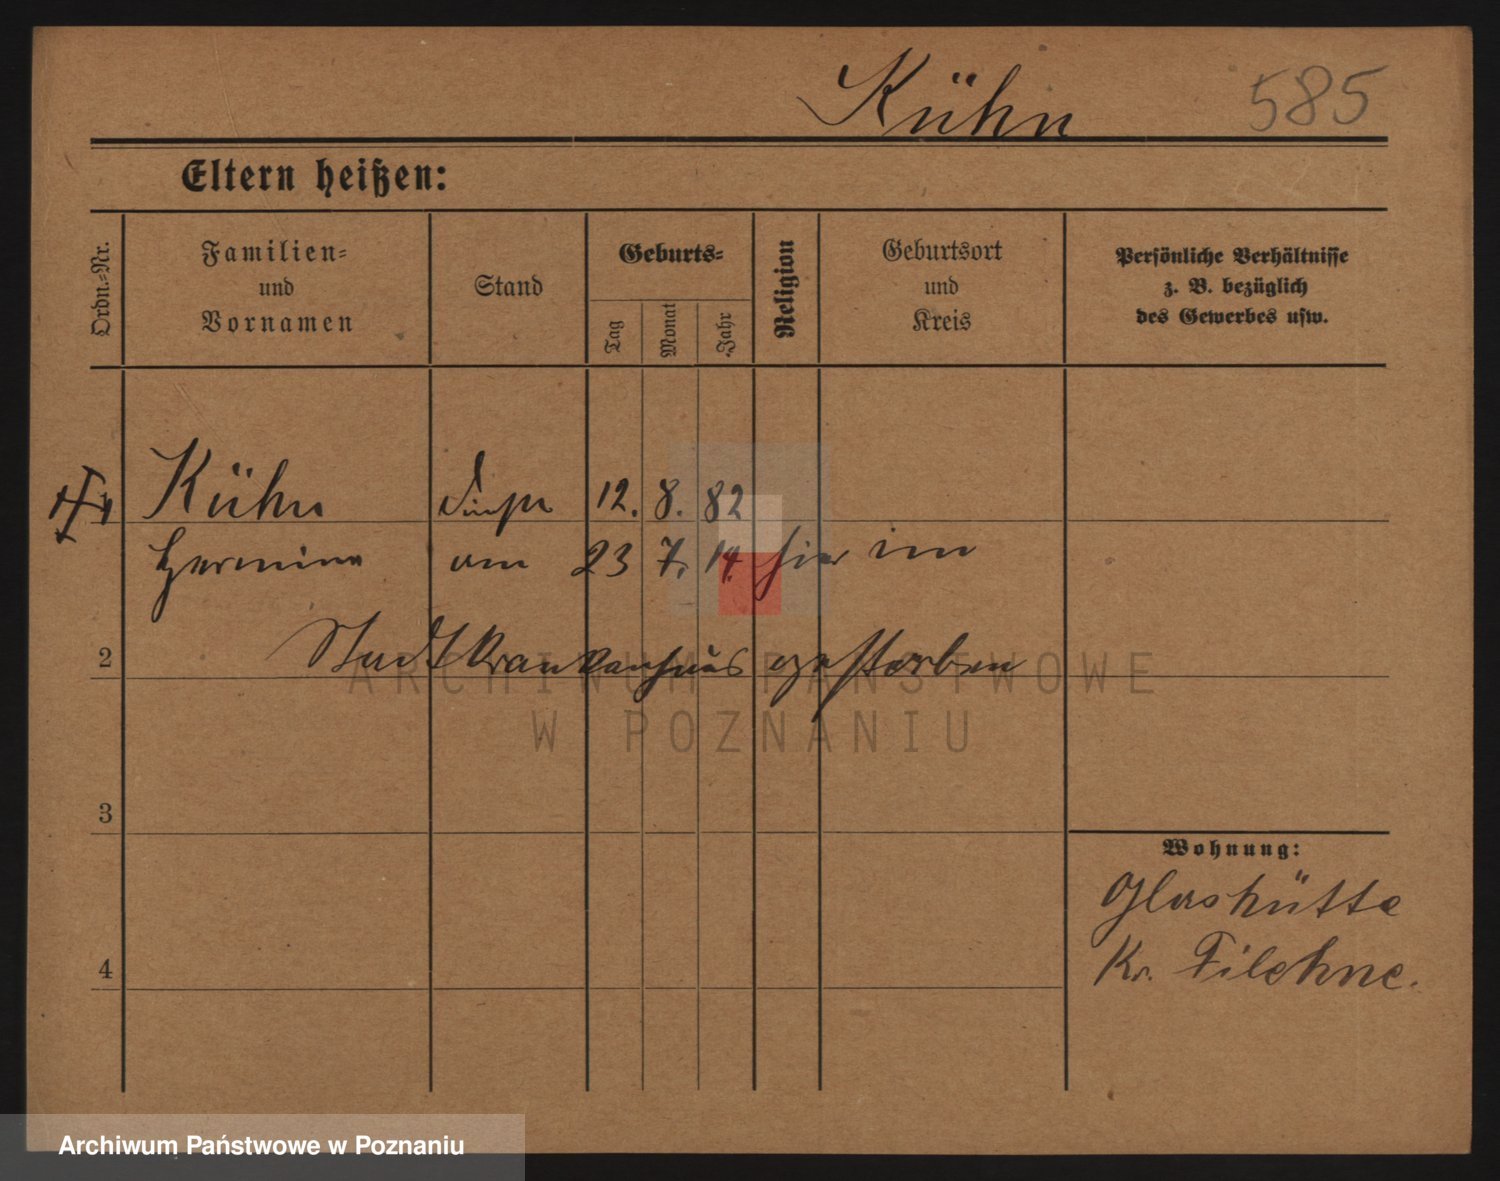 Kühn 585
Eltern heißen:
Ordn.-Nr.
Familien-
und
Vornamen
Stand
Geburts-
Tag
Monat
Jahr
Religion
Geburtsort
und
Kreis
Persönliche Verhältnisse
z. B. bezüglich
des Gewerbes usw.
Kühn 12. 8. 82
Hermine am 23 7. 14. hier im
2 Stadtkrankenhaus gestorben
3
Wohnung:
Glashütte
4 Kr. Filehne.
ARCHIWUM PAŃSTWOWE
W POZNANIU
Archiwum Państwowe w Poznaniu